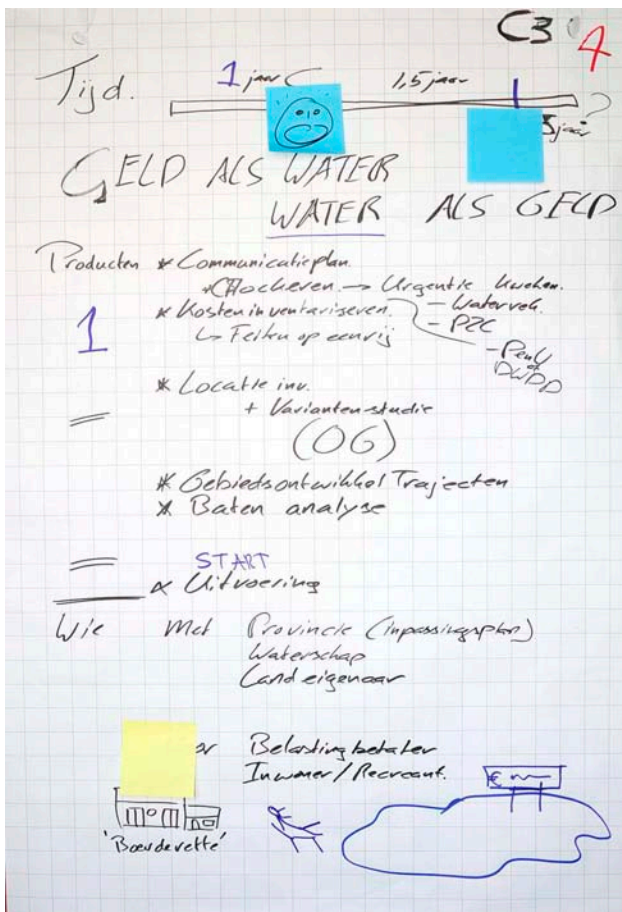 C3 4
Tijd. 1 jaar 1,5 jaar
5 jaar ?
GELD ALS WATER
WATER ALS GELD
Producten * Communicatieplan.
→ Urgentie kweken.
1 * Kosten inventariseren. - Waterveh.
↳ Feiten op een rij - PZC
- PenW
of
DWDD
* Locatie inv.
= + Variantenstudie
(OG)
* Gebiedsontwikkel Trajecten
* Baten analyse
= START
* Uitvoering
Wie Met Provincie (inpassingsplan)
Waterschap
Landeigenaar
or Belastingbetaler
Inwoner/Recreant.
€
'Boerderette'